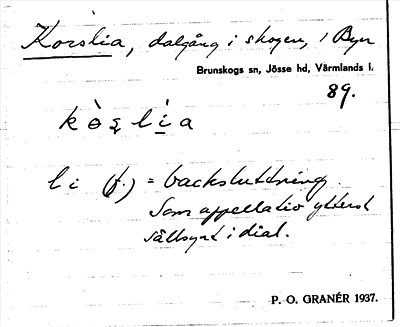 Korslia, dalgång i skogen, i Byn
Brunskogs sn, Jösse hd, Värmlands l.
89.
li (f.) = backsluttning.
Som appellativ ytterst
sällsynt i dial.
P. O. GRANÉR 1937.